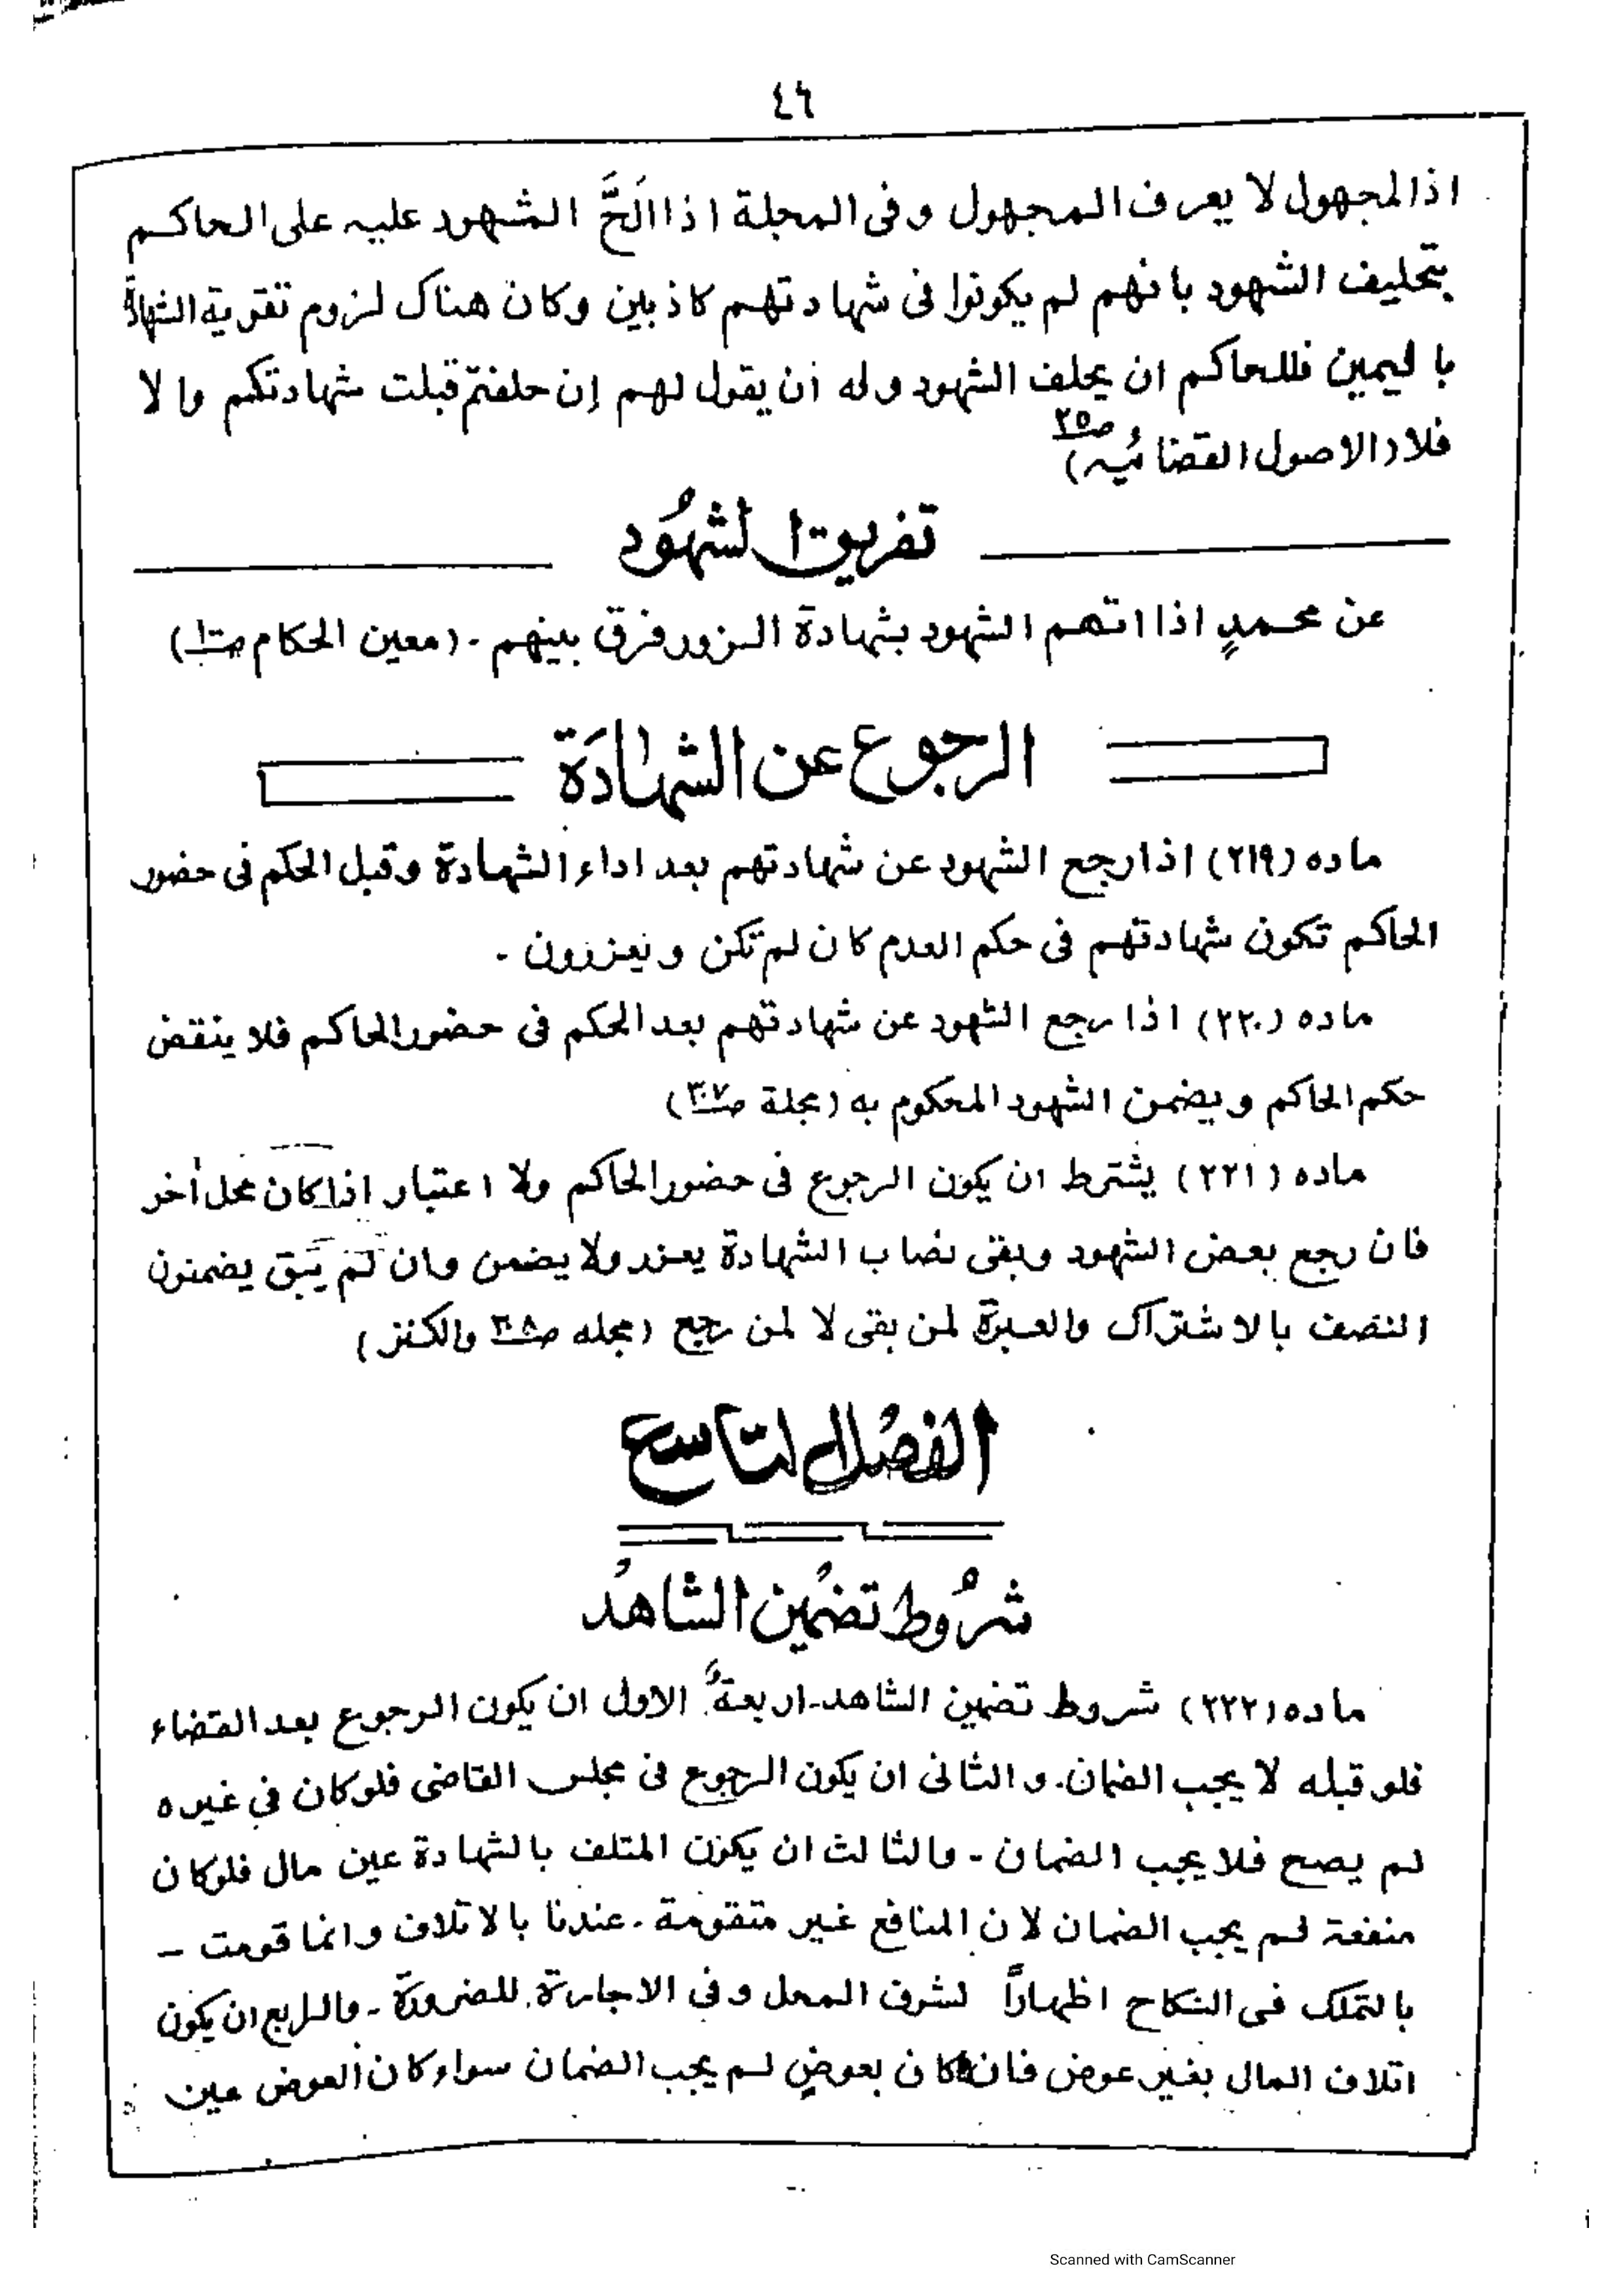 ٤٦
اذالمجهول لا يعرف المجهول وفى المجلة اذا اَلَحَّ المشهود عليه على الحاكم
بتحليف الشهود بانهم لم يكونوا فى شهادتهم كاذبين وكان هناك لزوم تقوية الشهادة
باليمين فللحاكم ان يحلف الشهود وله أن يقول لهم إن حلفتم قبلت شهادتكم والا
فلا (الاصول القضائيه ص٢٥)
تفريق الشهُود
عن محمدٍ اذا اتهم الشهود بشهادة الزور فرق بينهم - (معين الحكام
الرجوع عن الشهادَة
ماده (٢١٩) اذا رجع الشهود عن شهادتهم بعد اداء الشهادة وقبل الحكم فى حضور
الحاكم تكون شهادتهم فى حكم العدم كان لم تكن ويعزرون -
ماده (٢٢٠) اذا رجع الشهود عن شهادتهم بعد الحكم فى حضور الحاكم فلا ينقض
حكم الحاكم ويضمن الشهود المحكوم به (مجلة ص٣٠٧)
ماده (٢٢١) يشترط ان يكون الرجوع فى حضور الحاكم ولا اعتبار اذا كان محل أخر
فان رجع بعض الشهود وبقى نصاب الشهادة يعزر ولا يضمن وان لم يبق يضمنون
النصف بالاشتراك والعبرة لمن بقى لا لمن رجع (مجله ص٣٠٨ والكنز)
الفصل التاسع
شرُوط تضمين الشاهد
ماده (٢٢٢) شروط تضمين الشاهد اربعةٌ الاول ان يكون الرجوع بعد القضاء
فلو قبله لا يجب الضمان. والثانى ان يكون الرجوع فى مجلس القاضى فلو كان في غيره
لم يصح فلا يجب الضمان - والثالث ان يكون المتلف بالشهادة عين مال فلو كان
منفعة لم يجب الضمان لان المنافع غير متقومة - عندنا بالاتلاف وانما قومت -
بالتملك فى النكاح اظهاراً لشرف المحل وفى الاجارة للضرورة - والرابع ان يكون
اتلاف المال بغير عوض فان كان بعوضٍ لم يجب الضمان سواء كان العوض عين
Scanned with CamScanner